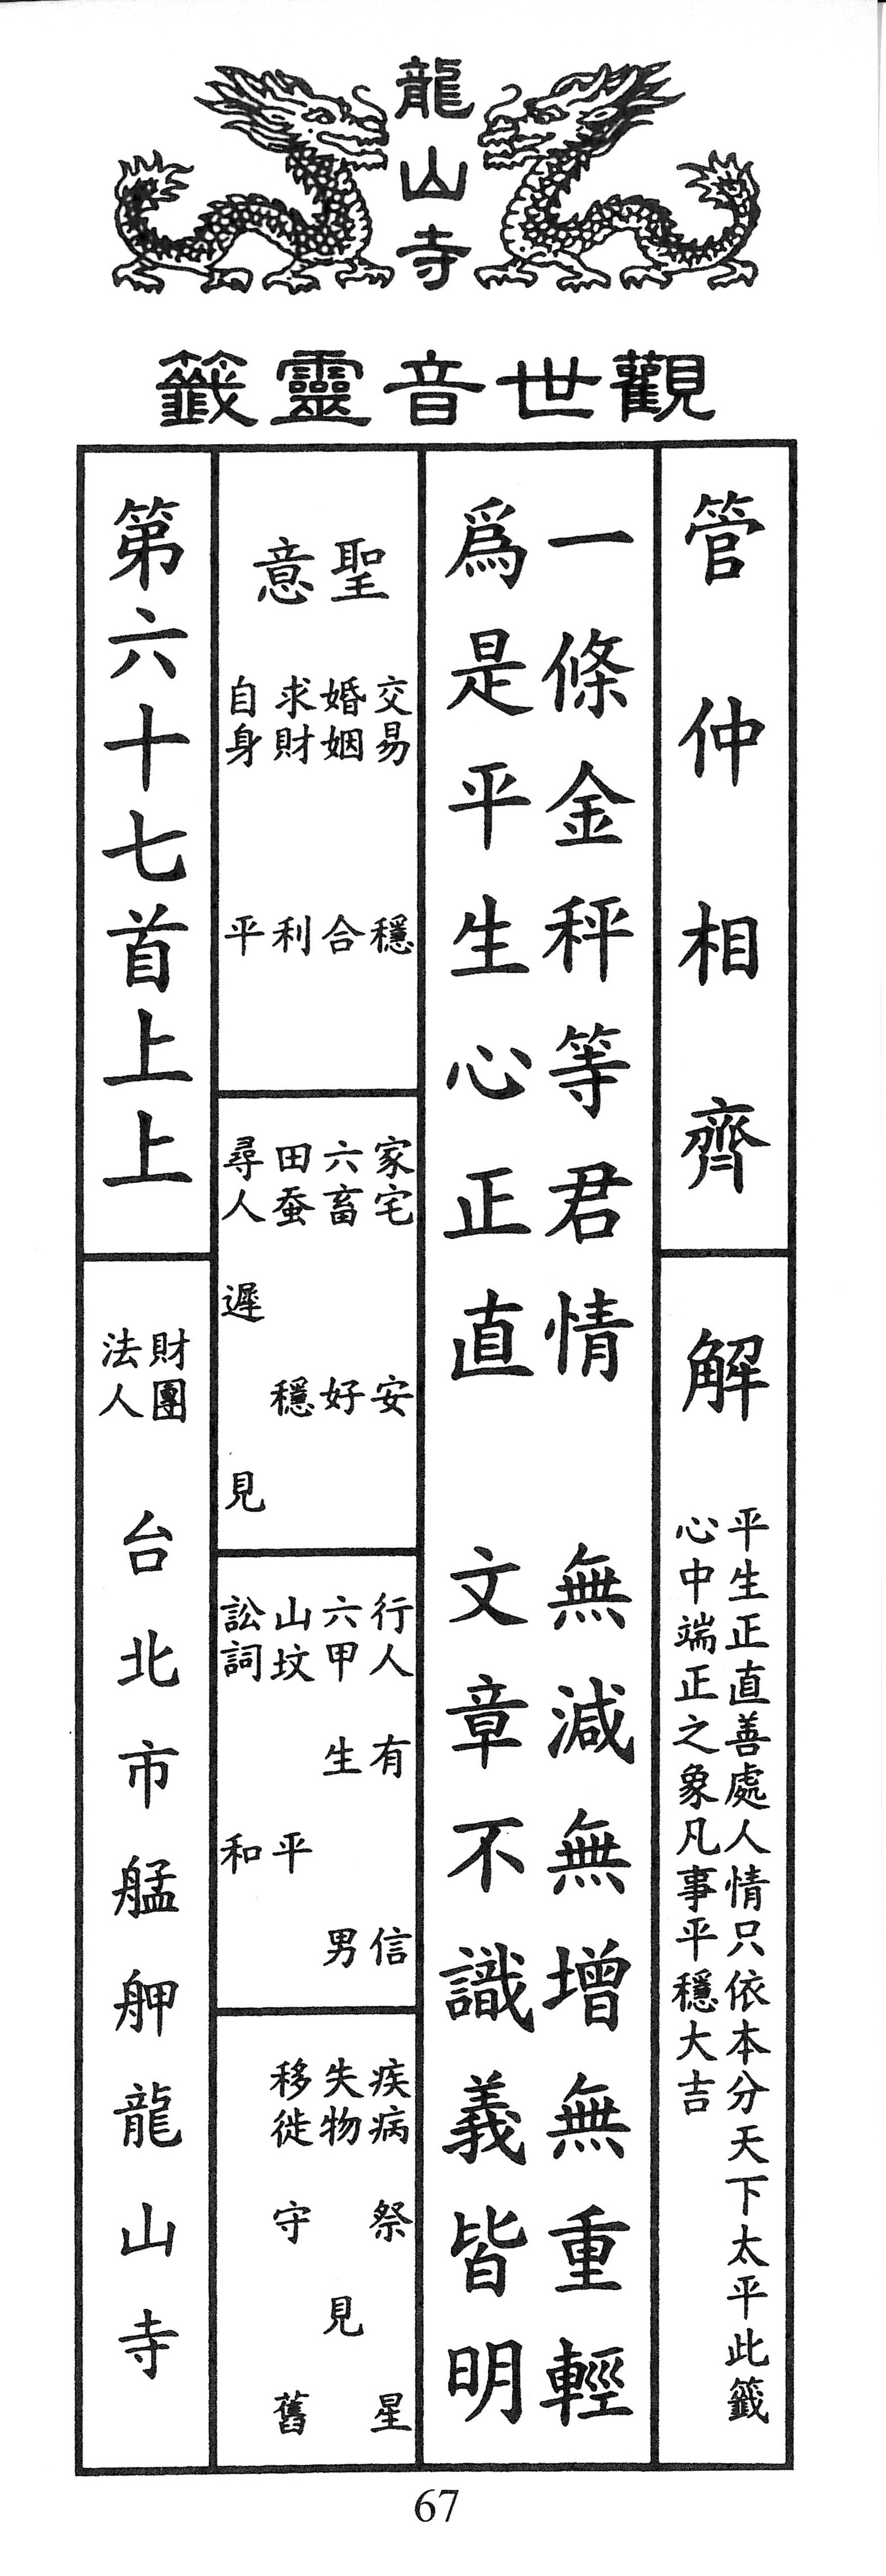 龍山寺
觀世音靈籤
管仲相齊
解
平生正直善處人情只依本分天下太平此籤
心中端正之象凡事平穩大吉
一條金秤等君情　無減無增無重輕
爲是平生心正直　文章不識義皆明
聖意
交易　穩
婚姻　合
求財　利
自身　平
家宅　安
六畜　好
田蚕　穩
尋人　遲見
行人　有信
六甲　生男
山坟　平
訟詞　和
疾病　祭星
失物　見
移徙　守舊
第六十七首上上
財團法人
台北市艋舺龍山寺
67